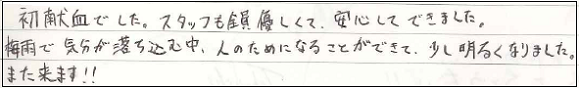 初献血でした。スタッフも全員優しくて、安心してできました。
梅雨で気分が落ち込む中、人のためになることができて、少し明るくなりました。
また来ます!!